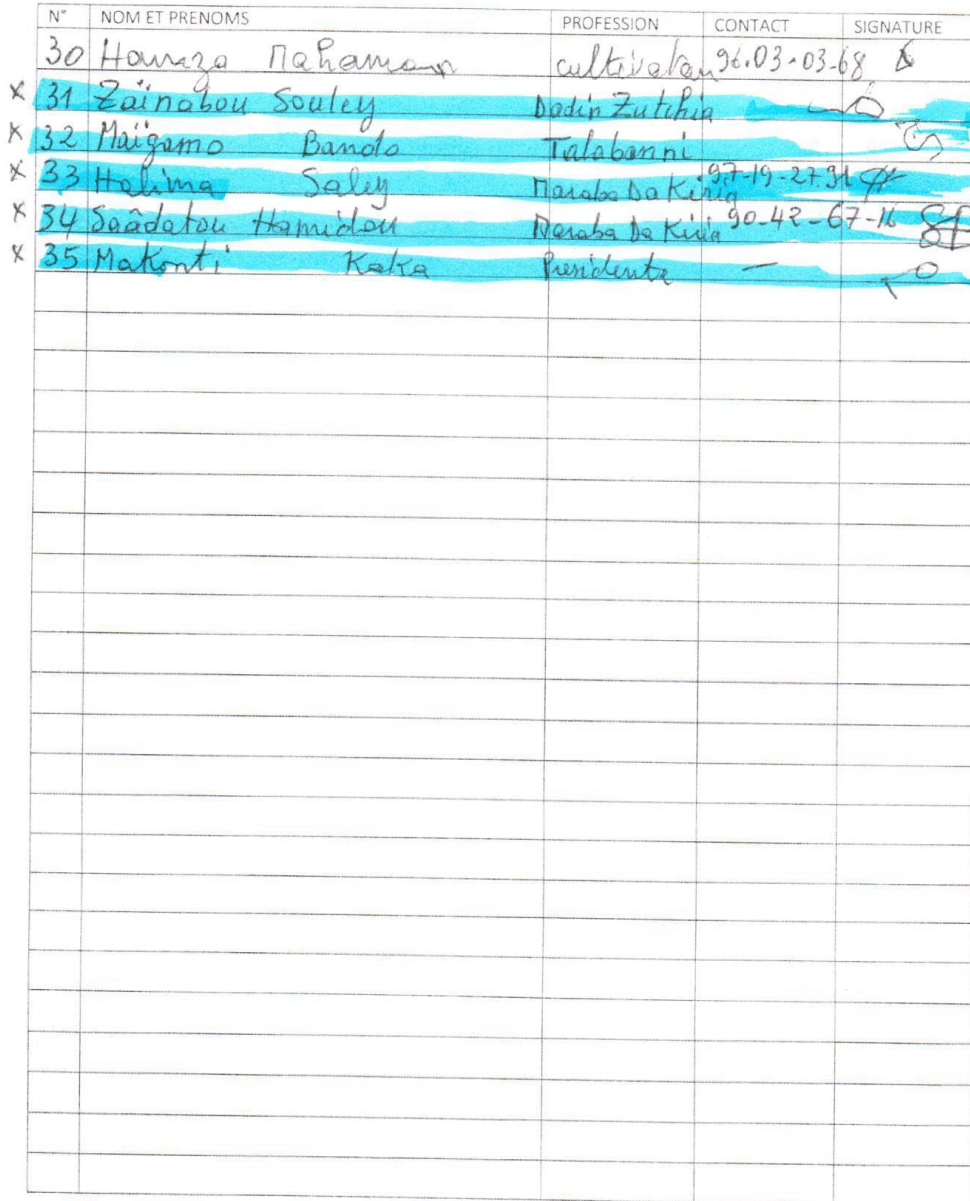 N° NOM ET PRENOMS PROFESSION CONTACT SIGNATURE
30 Hamza Mahaman cultivateur 96.03.03.68
x 31 Zaïnabou Souley Dadin Zutchia
x 32 Maïgamo Bando Talabanni
x 33 Halima Saley Maraba Da Kiria 97-19-27.91
x 34 Saâdatou Hamidou Maraba Da Kiria 90-42-67-16
x 35 Makonti Kaka Presidente —